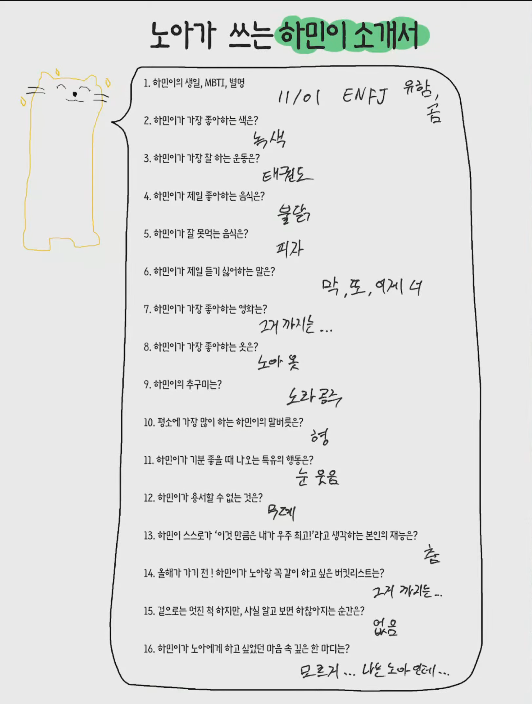 노아가 쓰는 하민이 소개서
1. 하민이의 생일, MBTI, 별명
11/01 ENFJ 유함,
곰
2. 하민이가 가장 좋아하는 색은?
녹색
3. 하민이가 가장 잘 하는 운동은?
태권도
4. 하민이가 제일 좋아하는 음식은?
불닭
5. 하민이가 잘 못먹는 음식은?
피자
6. 하민이가 제일 듣기 싫어하는 말은?
막, 또, 어제 너
7. 하민이가 가장 좋아하는 영화는?
그거 까지는 ...
8. 하민이가 가장 좋아하는 옷은?
노아 옷
9. 하민이의 추구미는?
노라공주
10. 평소에 가장 많이 하는 하민이의 말버릇은?
형
11. 하민이가 기분 좋을 때 나오는 특유의 행동은?
눈 웃음
12. 하민이가 용서할 수 없는 것은?
13. 하민이 스스로가 '이것 만큼은 내가 우주 최고!'라고 생각하는 본인의 재능은?
춤
14. 올해가 가기 전 ! 하민이가 노아랑 꼭 같이 하고 싶은 버킷리스트는?
그거 까지는 ...
15. 겉으로는 멋진 척 하지만, 사실 알고 보면 하찮아지는 순간은?
없음
16. 하민이가 노아에게 하고 싶었던 마음 속 깊은 한 마디는?
모르지 ... 나는 노아 인데 ...